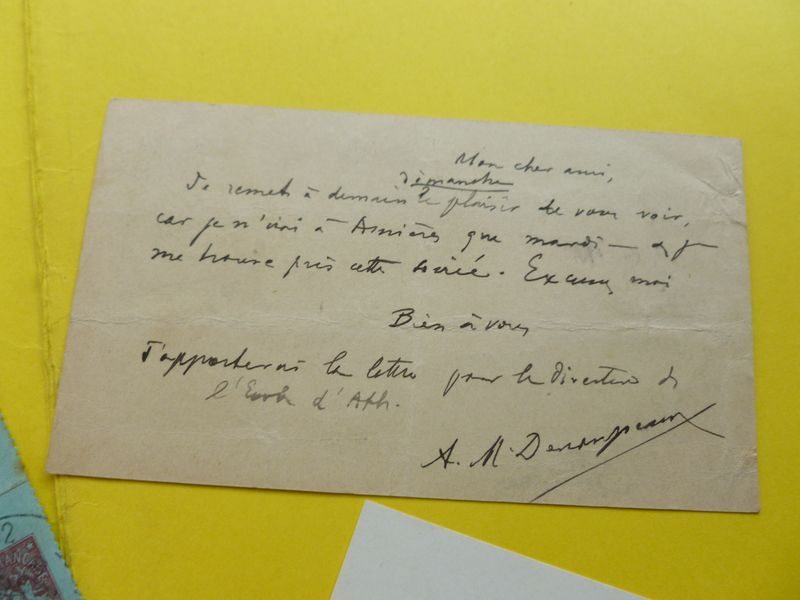 Mon cher ami,
dimanche
Je remets à demain le plaisir de vous voir,
car je n'irai à Asnières que mardi — et je
me trouve pris cette soirée. Excusez moi
Bien à vous
J'apporterai la lettre pour le directeur de
l'Ecole d'Ath.
A. M. Desrousseaux
2